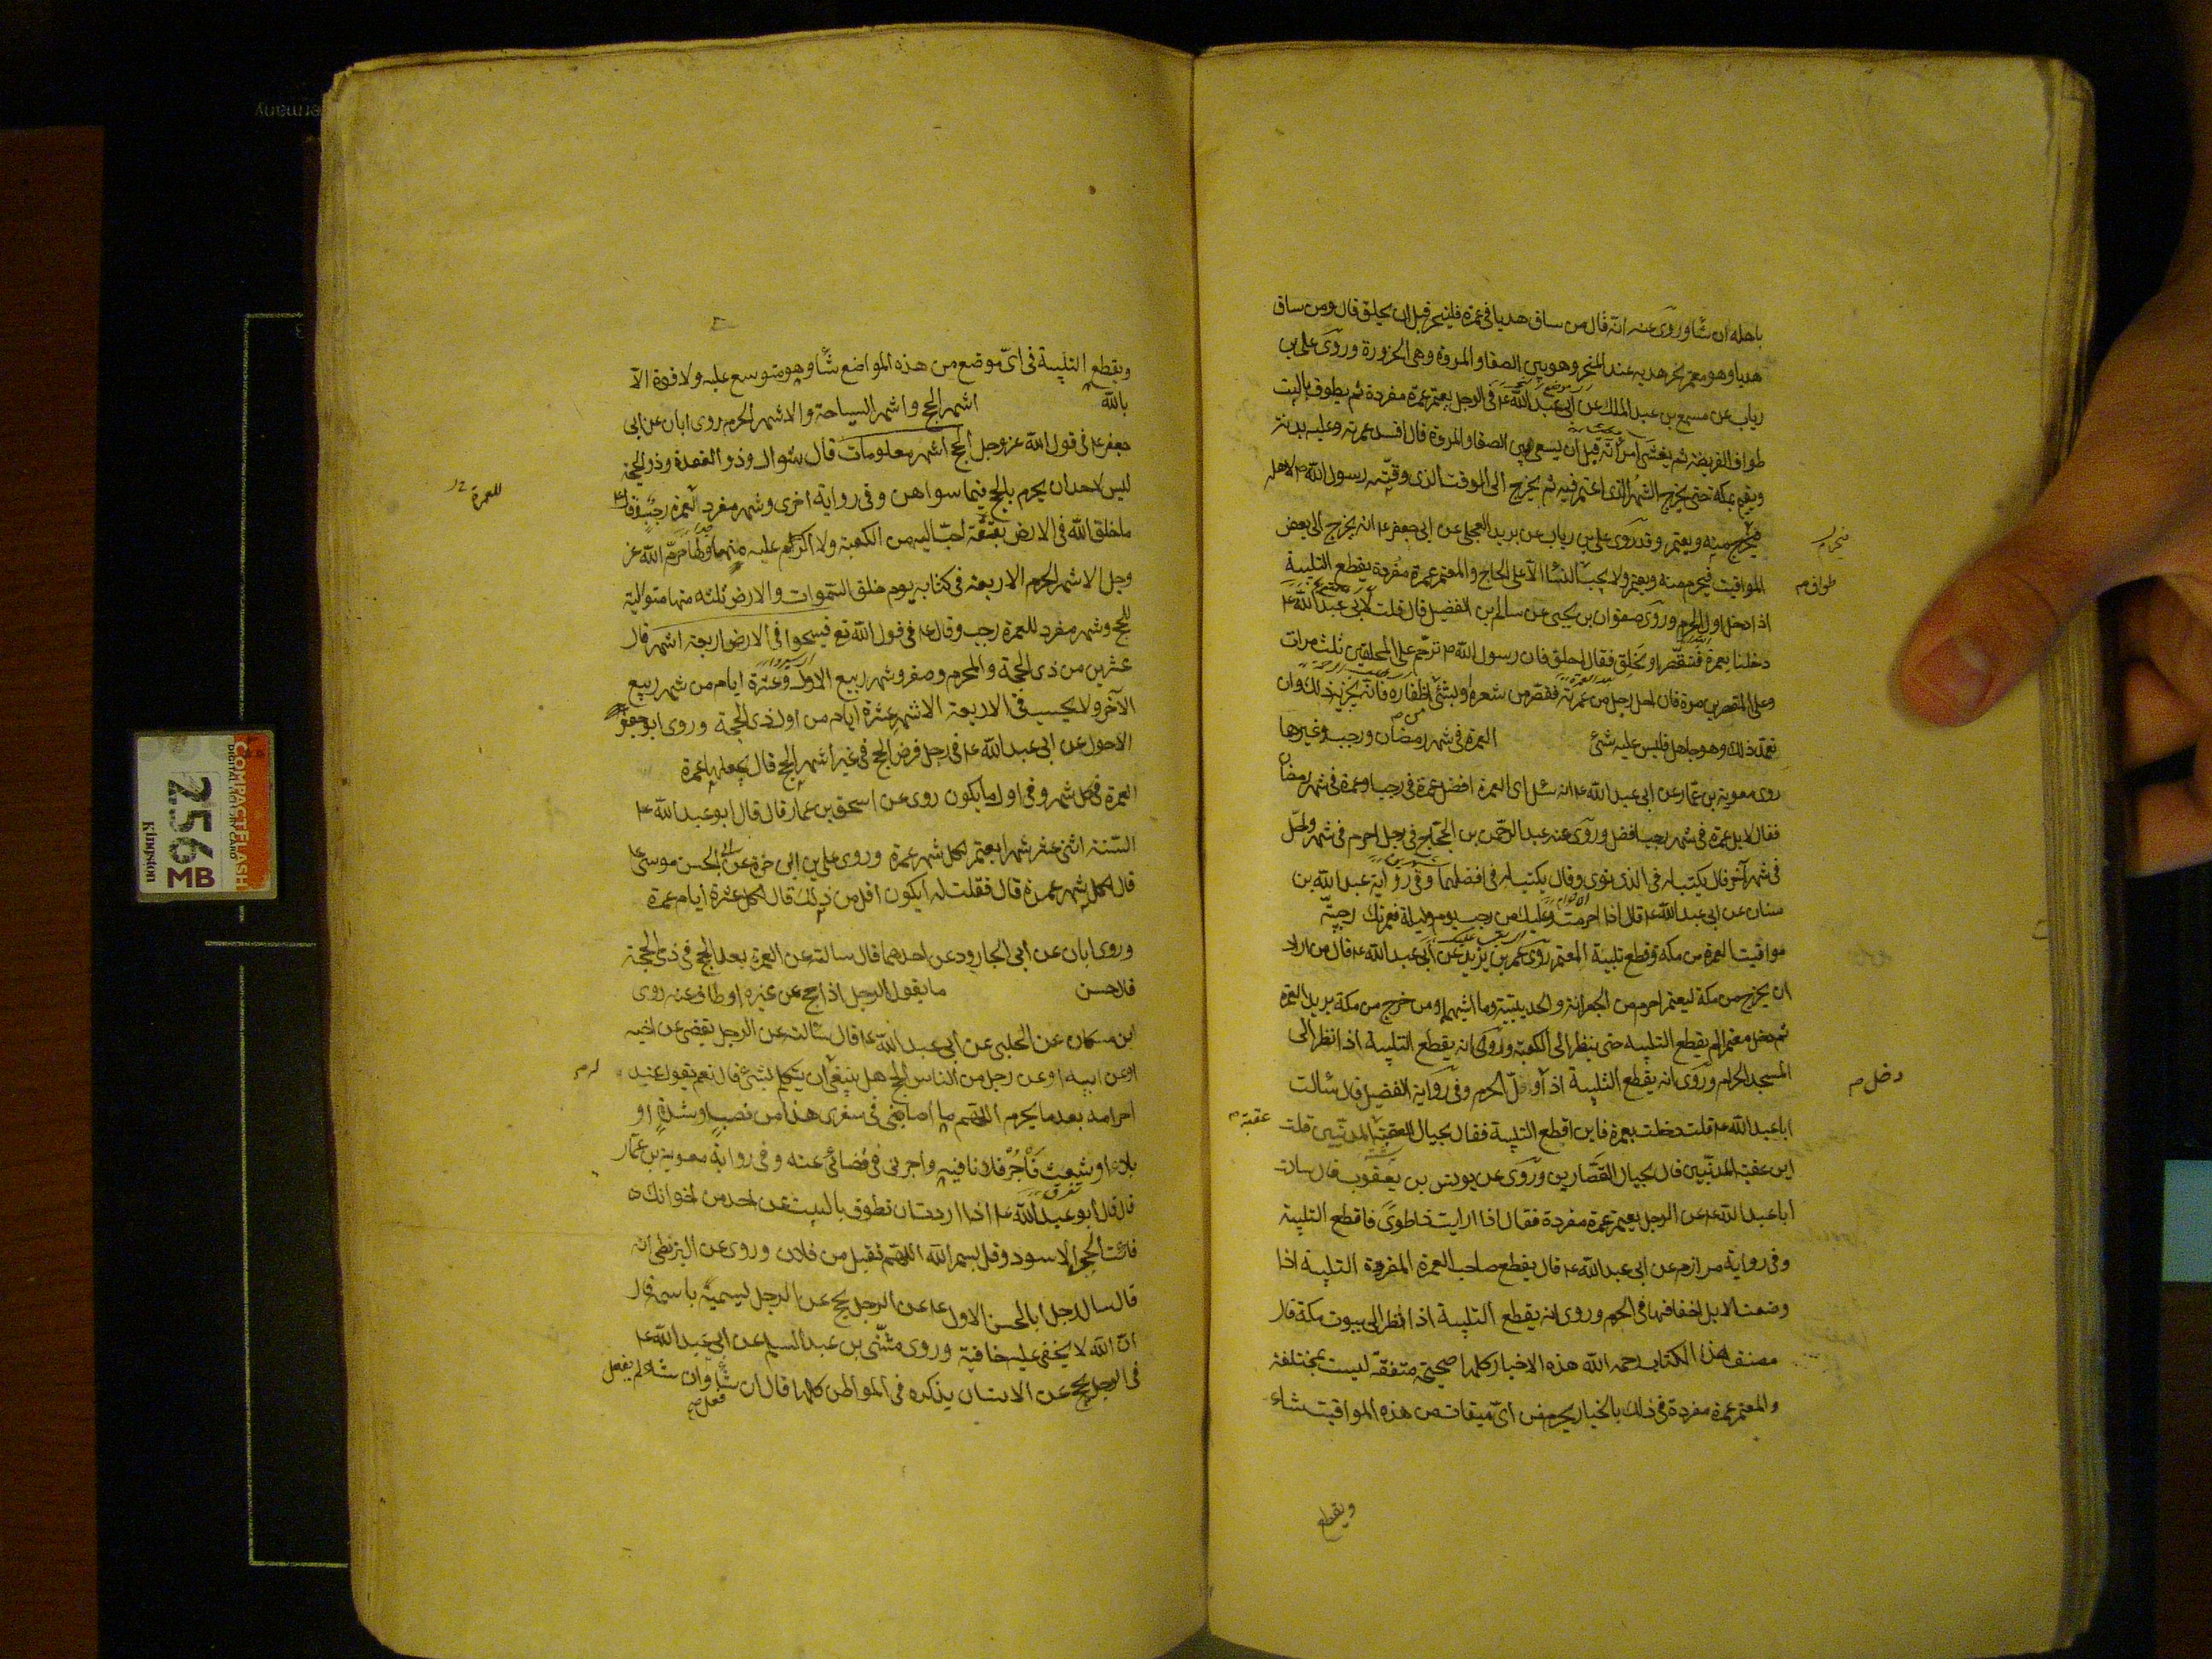 باهله ان شاء وروى عنه انه قال من ساق هديا فى عمرة فلينحر قبل ان يحلق قال ومن ساق
هديا وهو معتمر نحر هديه عند المنحر وهو بين الصفا والمروة وهى الحزورة وروى على بن
رياب عن مسمع بن عبد الملك عن ابى عبد الله ع فى الرجل يعتمر عمرة مفردة ثم يطوف بالبيت
طواف الفريضة ثم يغشى امرأته قبل ان يسعى بين الصفا والمروة قال افسد عمرته وعليه بدنة
ويقيم بمكة حتى يخرج الشهر الذى اعتمر فيه ثم يخرج الى الوقت الذى وقته رسول الله ص لاهله
فيحرم منه ويعتمر وقد روى على بن رياب عن بريد العجلى عن ابى جعفر ع انه يخرج الى بعض
المواقيت فيحرم منه ويعتمر ولا يجب النساء الا على الحاج والمعتمر عمرة مفردة يقطع التلبية
طواف م
اذا دخل اول الحرم وروى صفوان بن يحيى عن سالم بن الفضيل قال قلت لابى عبد الله ع
دخلنا بعمرة فنقصر او نحلق فقال احلق فان رسول الله ص ترحم على المحلقين ثلث مرات
وعلى المقصرين مرة فان احل رجل من عمرته فقصر من شعره او بشئ اظفاره فانه يجزيه ذلك وان
تعمد ذلك وهو جاهل فليس عليه شئ العمرة فى شهر رمضان ورجب وغيرها
روى معوية بن عمار عن ابى عبد الله ع انه سئل اى العمرة افضل عمرة فى رجب او عمرة فى شهر رمضان
فقال لا بل عمرة فى شهر رجب افضل وروى عنه عبد الرحمن بن الحجاج فى رجل احرم فى شهر واحل
فى شهر آخر قال يكتب له فى الذى نوى وقال يكتب له فى افضلهما وفى رواية عبد الله بن
سنان عن ابى عبد الله ع قال اذا احرمت وعليك من رجب يوم وليلة فعمرتك رجبية
مواقيت العمرة من مكة وقطع تلبية المعتمر روى عمر بن يزيد عن ابى عبد الله ع قال من اراد
ان يخرج من مكة ليعتمر احرم من الجعرانة والحديبية وما اشبههما ومن خرج من مكة يريد العمرة
ثم دخل معتمرا لم يقطع التلبيه حتى ينظر الى الكعبة وروى انه يقطع التلبية اذا نظر الى
المسجد الحرام وروى انه يقطع التلبية اذا اول الحرم وفى رواية الفضيل قال سألت
دخل م
ابا عبد الله ع قلت دخلت بعمرة فاين اقطع التلبية فقال بحيال العقبة المدنيين قلت
عقبة م
اين عقبة المدنيين قال بحيال القصارين وروى عن يونس بن يعقوب قال سالت
ابا عبد الله ع عن الرجل يعتمر عمرة مفردة فقال اذا رايت ذا طوى فاقطع التلبية
وفى رواية مرازم عن ابى عبد الله ع قال يقطع صاحب العمرة المفردة التلبية اذا
وضعت الابل اخفافها فى الحرم وروى انه يقطع التلبية اذا نظر الى بيوت مكة قال
مصنف هذا الكتاب رحمه الله هذه الاخبار كلها صحيحة متفقة ليست بمختلفة
والمعتمر عمرة مفردة فى ذلك بالخيار يحرم من اى ميقات من هذه المواقيت شاء
ويقطع
ويقطع التلبية فى اى موضع من هذه المواضع شاء وهو متوسع عليه ولا قوة الا
بالله اشهر الحج واشهر السياحة والاشهر الحرم روى ابان عن ابى
جعفر ع فى قول الله عز وجل الحج اشهر معلومات قال شوال وذو القعدة وذو الحجة
ليس لاحد ان يحرم بالحج فيما سواهن وفى رواية اخرى وشهر مفرد العمرة رجب وقال ع
للعمرة
ما خلق الله فى الارض بقعة احب اليه من الكعبة ولا اكرم عليه منها ولها حرم الله عز
وجل الاشهر الحرم الاربعة فى كتابه يوم خلق السموات والارض ثلثه منها متوالية
للحج وشهر مفرد للعمرة رجب وقال ع فى قول الله تع فسيحوا فى الارض اربعة اشهر قال
عشرين من ذى الحجة والمحرم وصفر وشهر ربيع الاول وعشرة ايام من شهر ربيع
الآخر ولا يحسب فى الاربعة الاشهر عشرة ايام من اول ذى الحجة وروى ابو جعفر
الاحول عن ابى عبد الله ع فى رجل فرض الحج فى غير اشهر الحج قال يجعلها عمرة
العمرة فى كل شهر وفى اول ما يكون روى عن اسحق بن عمار قال قال ابو عبد الله ع
السنة اثنى عشر شهرا يعتمر لكل شهر عمرة وروى على بن ابى حمزة عن ابى الحسن موسى ع
قال لكل شهر عمرة قال فقلت له ايكون اقل من ذلك قال لكل عشرة ايام عمرة
وروى ابان عن ابى الجارود عن احدهما قال سالته عن العمرة بعد الحج فى ذى الحجة
قال حسن ما يقول الرجل اذا حج عن غيره او طاف عنه روى
ابن مسكان عن الحلبى عن ابى عبد الله ع قال سالته عن الرجل يقضى عن اخيه
او عن ابيه او عن رجل من الناس الحج هل ينبغى ان يتكلم بشئ قال نعم يقول عند
احرامه بعد ما يحرم اللهم ما اصابنى فى سفرى هذا من نصب او شدة او
بلاء او شعث فأجر فلانا فيه واجرنى فى قضائى عنه وفى رواية معوية بن عمار
قال قال ابو عبد الله ع اذا اردت ان تطوف بالبيت عن احد من اخوانك
فائت الحجر الاسود وقل بسم الله اللهم تقبل من فلان وروى عن البزنطى انه
قال سال رجل ابا الحسن الاول ع عن الرجل يحج عن الرجل يسميه باسمه قال
ان الله لا يخفى عليه خافية وروى مثنى بن عبد السلم عن ابى عبد الله ع
فى الرجل يحج عن الانسان يذكره فى المواطن كلها قال ان شاء وان شاء لم يفعل
فعل ص
COMPACTFLASH
DIGITAL MEMORY CARD
256
MB
Kingston